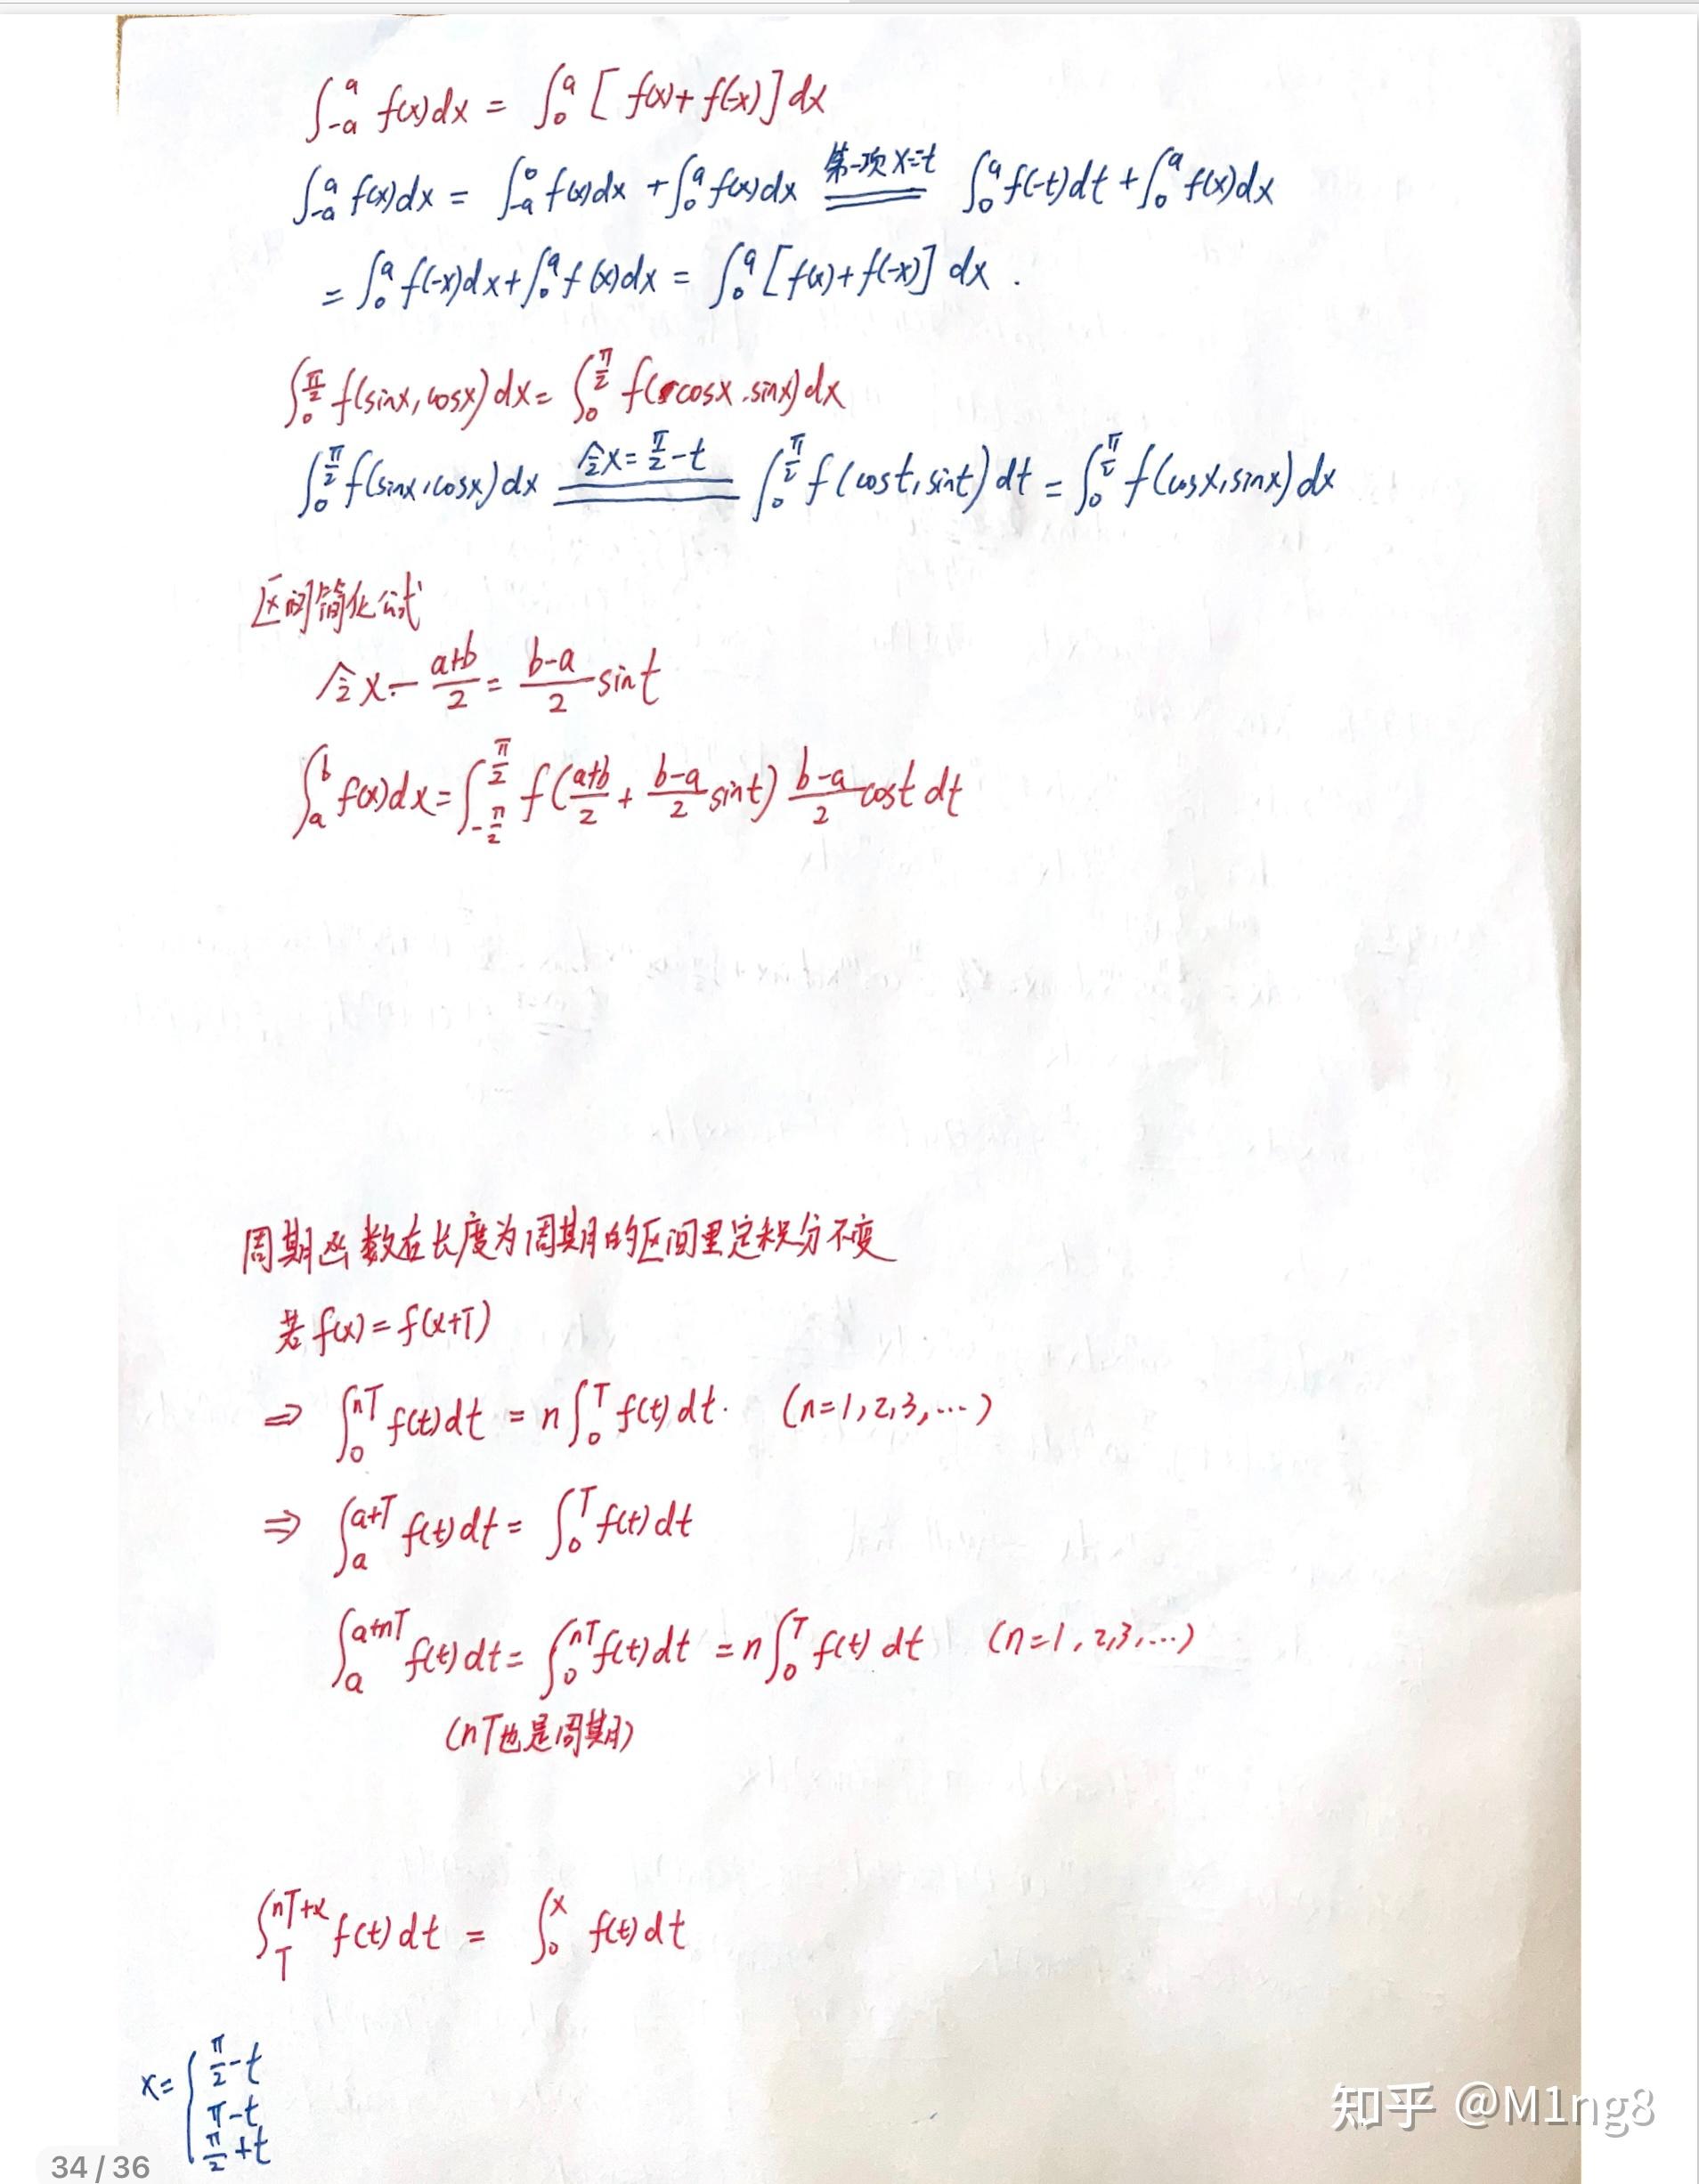 ∫_{-a}^{a} f(x)dx = ∫_0^a [f(x)+f(-x)]dx
∫_{-a}^{a} f(x)dx = ∫_{-a}^0 f(x)dx + ∫_0^a f(x)dx 第一项x=-t ∫_0^a f(-t)dt + ∫_0^a f(x)dx
= ∫_0^a f(-x)dx + ∫_0^a f(x)dx = ∫_0^a [f(x)+f(-x)] dx .
∫_0^{π/2} f(sinx, cosx)dx = ∫_0^{π/2} f(cosx, sinx)dx
∫_0^{π/2} f(sinx, cosx)dx 令x=π/2-t ∫_0^{π/2} f(cost, sint)dt = ∫_0^{π/2} f(cosx, sinx)dx
区间简化公式
令 x - (a+b)/2 = (b-a)/2 sint
∫_a^b f(x)dx = ∫_{-π/2}^{π/2} f((a+b)/2 + (b-a)/2 sint) (b-a)/2 cost dt
周期函数在长度为周期的区间里定积分不变
若 f(x) = f(x+T)
⇒ ∫_0^{nT} f(t)dt = n∫_0^T f(t)dt. (n=1,2,3,…)
⇒ ∫_a^{a+T} f(t)dt = ∫_0^T f(t)dt
∫_a^{a+nT} f(t)dt = ∫_0^{nT} f(t)dt = n∫_0^T f(t)dt (n=1,2,3,…)
(nT也是周期)
∫_T^{nT+x} f(t)dt = ∫_0^x f(t)dt
x= { π/2-t
π-t
π/2+t
知乎 @M1ng8
34 / 36